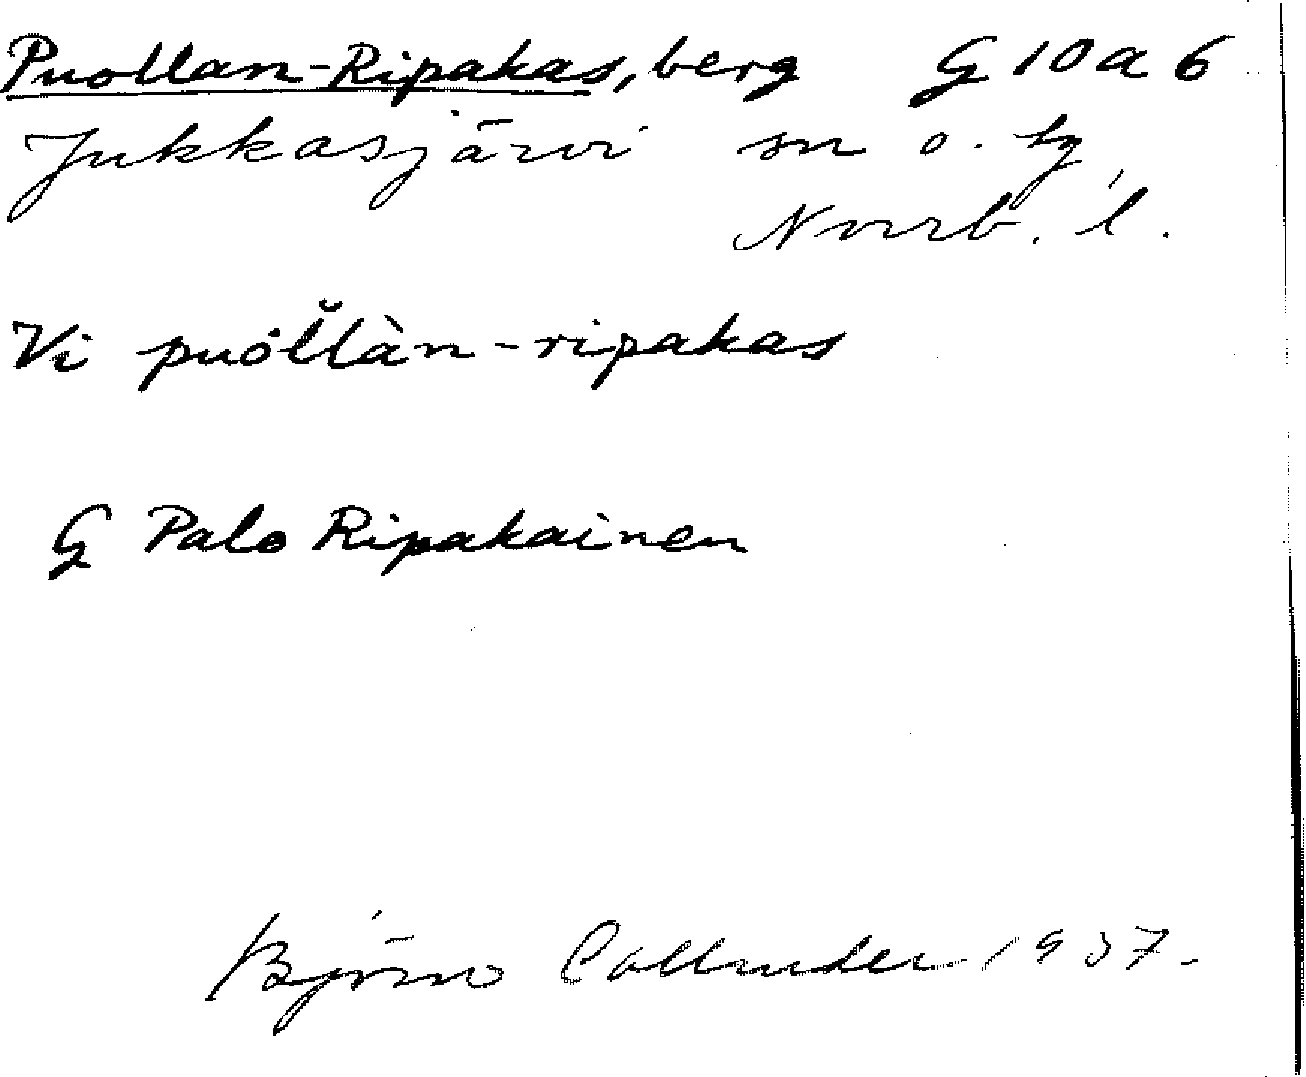 Puollan-Ripakas, berg G 10 a 6
Jukkasjärvi sn o. tg
Norrb. l.
Vi puöl̆làn-ripakas
G Palo Ripakainen
Björn Collinder 1937.